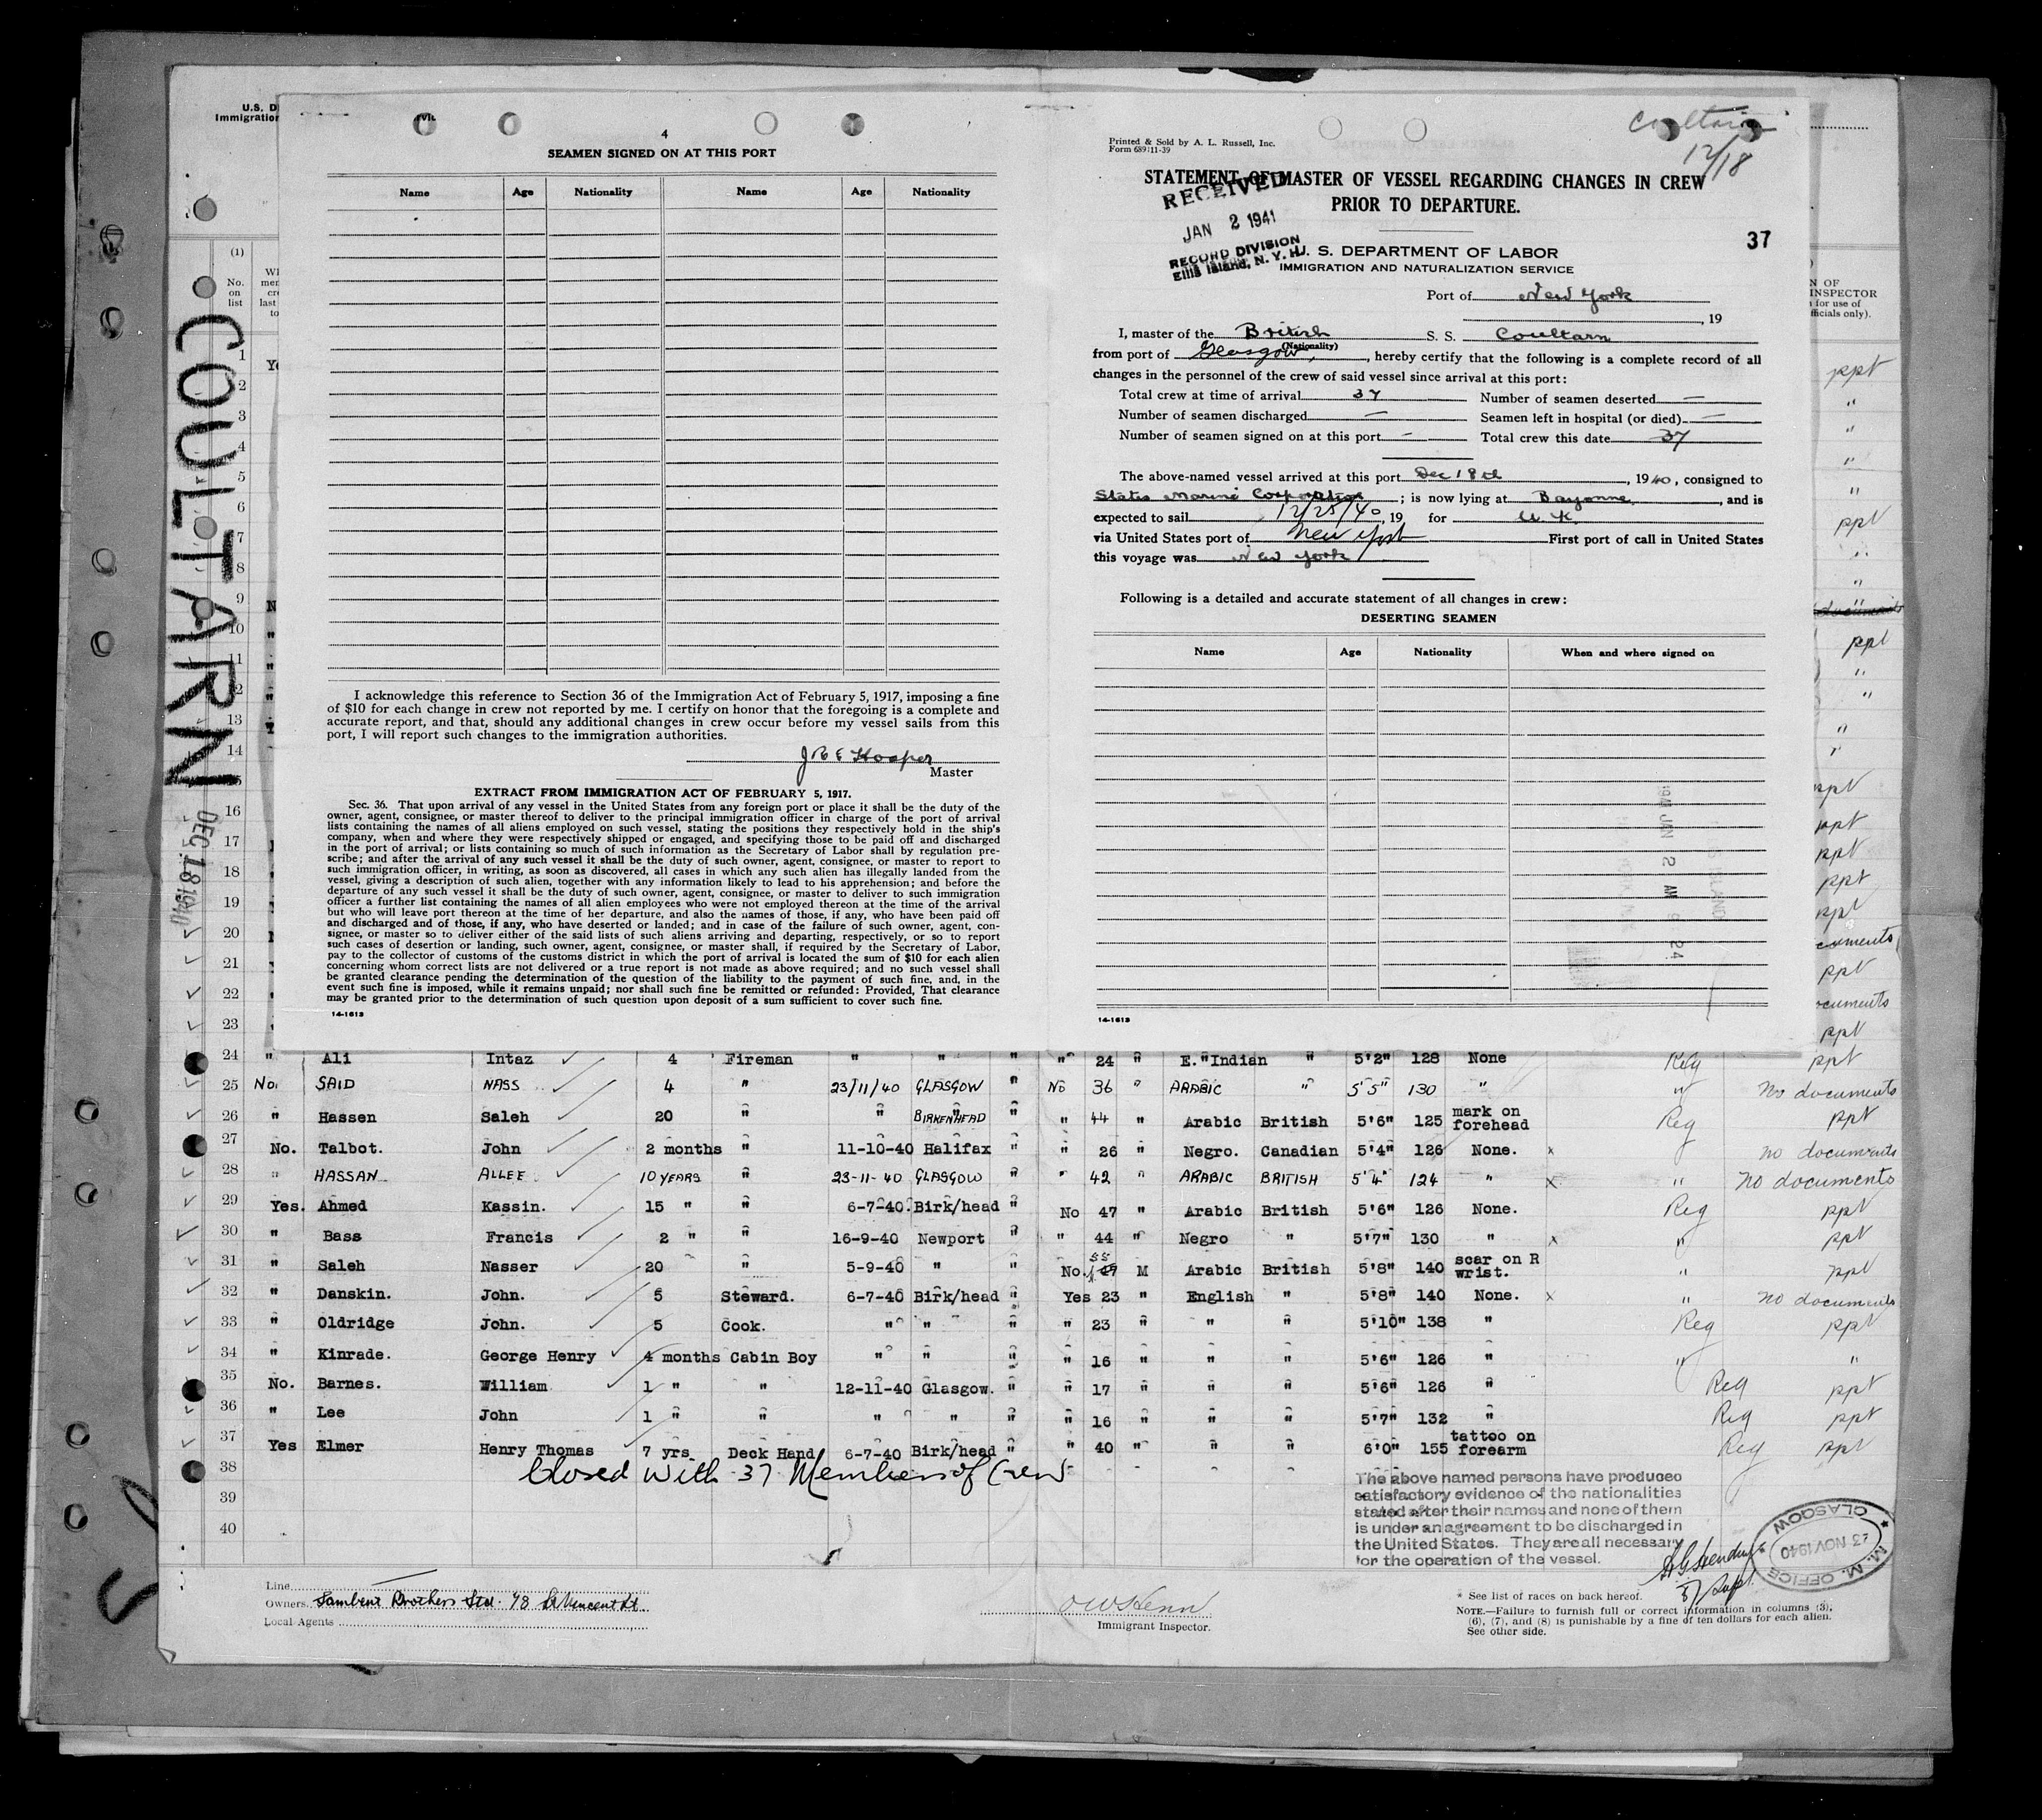 U.S. D
Immigration
rvic
4
SEAMEN SIGNED ON AT THIS PORT
Name Age Nationality Name Age Nationality
I acknowledge this reference to Section 36 of the Immigration Act of February 5, 1917, imposing a fine
of $10 for each change in crew not reported by me. I certify on honor that the foregoing is a complete and
accurate report, and that, should any additional changes in crew occur before my vessel sails from this
port, I will report such changes to the immigration authorities.
J R E Hooper
Master
EXTRACT FROM IMMIGRATION ACT OF FEBRUARY 5, 1917.
Sec. 36. That upon arrival of any vessel in the United States from any foreign port or place it shall be the duty of the
owner, agent, consignee, or master thereof to deliver to the principal immigration officer in charge of the port of arrival
lists containing the names of all aliens employed on such vessel, stating the positions they respectively hold in the ship's
company, when and where they were respectively shipped or engaged, and specifying those to be paid off and discharged
in the port of arrival; or lists containing so much of such information as the Secretary of Labor shall by regulation pre-
scribe; and after the arrival of any such vessel it shall be the duty of such owner, agent, consignee, or master to report to
such immigration officer, in writing, as soon as discovered, all cases in which any such alien has illegally landed from the
vessel, giving a description of such alien, together with any information likely to lead to his apprehension; and before the
departure of any such vessel it shall be the duty of such owner, agent, consignee, or master to deliver to such immigration
officer a further list containing the names of all alien employees who were not employed thereon at the time of the arrival
but who will leave port thereon at the time of her departure, and also the names of those, if any, who have been paid off
and discharged and of those, if any, who have deserted or landed; and in case of the failure of such owner, agent, con-
signee, or master so to deliver either of the said lists of such aliens arriving and departing, respectively, or so to report
such cases of desertion or landing, such owner, agent, consignee, or master shall, if required by the Secretary of Labor,
pay to the collector of customs of the customs district in which the port of arrival is located the sum of $10 for each alien
concerning whom correct lists are not delivered or a true report is not made as above required; and no such vessel shall
be granted clearance pending the determination of the question of the liability to the payment of such fine, and, in the
event such fine is imposed, while it remains unpaid; nor shall such fine be remitted or refunded: Provided, That clearance
may be granted prior to the determination of such question upon deposit of a sum sufficient to cover such fine.
14-1613
Printed & Sold by A. L. Russell, Inc.
Form 689:11-39
12/18
STATEMENT OF MASTER OF VESSEL REGARDING CHANGES IN CREW
PRIOR TO DEPARTURE.
RECEIVED
JAN 2 1941
RECORD DIVISION
Ellis Island, N. Y. H.
37
U. S. DEPARTMENT OF LABOR
IMMIGRATION AND NATURALIZATION SERVICE
Port of New York
, 19
I, master of the British S. S. Coultarn
(Nationality)
from port of Glasgow, , hereby certify that the following is a complete record of all
changes in the personnel of the crew of said vessel since arrival at this port:
Total crew at time of arrival 37 Number of seamen deserted —
Number of seamen discharged — Seamen left in hospital (or died) —
Number of seamen signed on at this port - Total crew this date 37
The above-named vessel arrived at this port Dec 18th , 1940, consigned to
States Marine Corporation ; is now lying at Bayonne, , and is
expected to sail 12/25/40, 19 for U. K.
via United States port of New York First port of call in United States
this voyage was New York
Following is a detailed and accurate statement of all changes in crew:
DESERTING SEAMEN
Name Age Nationality When and where signed on
1941 JAN 2 AM 9 24
14-1613
COULTARN
DEC 18 1940
(1)
No.
on
list
N OF
INSPECTOR
for use of
fficials only).
1 Ye ppt
2 "
3 "
4 "
5 "
6 ppt
7 "
8 "
9 N "
10 " ppt
11 " "
12 " "
13 "
14 "
16
17
18
19
20 cuments
21 ppt
22 ocuments
23 ppt
24 " Ali Intaz 4 Fireman " " " " 24 " E. "Indian " 5'2" 128 None Reg ppt
25 No. SAID NASS 4 " 23/11/40 GLASGOW " No 36 " ARABIC " 5'5" 130 " " No documents
26 " Hassen Saleh 20 " " BIRKENHEAD " " 44 " Arabic British 5'6" 125 mark on forehead Reg ppt
27 No. Talbot. John 2 months " 11-10-40 Halifax " " 26 " Negro. Canadian 5'4" 126 None. x no documents
28 " HASSAN ALLEE 10 YEARS " 23-11-40 GLASGOW " " 42 " ARABIC BRITISH 5'4" 124 " x " no documents
29 Yes. Ahmed Kassin. 15 " " 6-7-40. Birk/head " No 47 " Arabic British 5'6" 126 None. Reg ppt
30 " Bass Francis 2 " " 16-9-40 Newport " " 44 " Negro " 5'7" 130 " x " ppt
31 " Saleh Nasser 20 " 5-9-40 " " No. 55 47 M Arabic British 5'8" 140 scar on R wrist. " ppt
32 " Danskin. John. 5 Steward. 6-7-40 Birk/head " Yes 23 " English " 5'8" 140 None. x " no documents
33 " Oldridge John. 5 Cook. " " " " 23 " " " 5'10" 138 " Reg ppt
34 " Kinrade. George Henry 4 months Cabin Boy " " " " 16 " " " 5'6" 126 " " "
35 No. Barnes. William 1 " " 12-11-40 Glasgow. " " 17 " " " 5'6" 126 " Reg ppt
36 " Lee John 1 " " " " " " 16 " " " 5'7" 132 " Reg ppt
37 Yes Elmer Henry Thomas 7 yrs. Deck Hand 6-7-40 Birk/head " " 40 " " " 6'0" 155 tattoo on forearm Reg ppt
38 Closed with 37 Members of Crew
39
40
The above named persons have produced
satisfactory evidence of the nationalities
stated after their names and none of them
is under an agreement to be discharged in
the United States. They are all necessary
for the operation of the vessel.
M. M. OFFICE
GLASGOW
23 NOV 1940
Line
Owners. Lambert Brothers Ltd. 48 St Vincent St.
Local Agents
Immigrant Inspector.
* See list of races on back hereof.
NOTE.—Failure to furnish full or correct information in columns (3),
(6), (7), and (8) is punishable by a fine of ten dollars for each alien.
See other side.